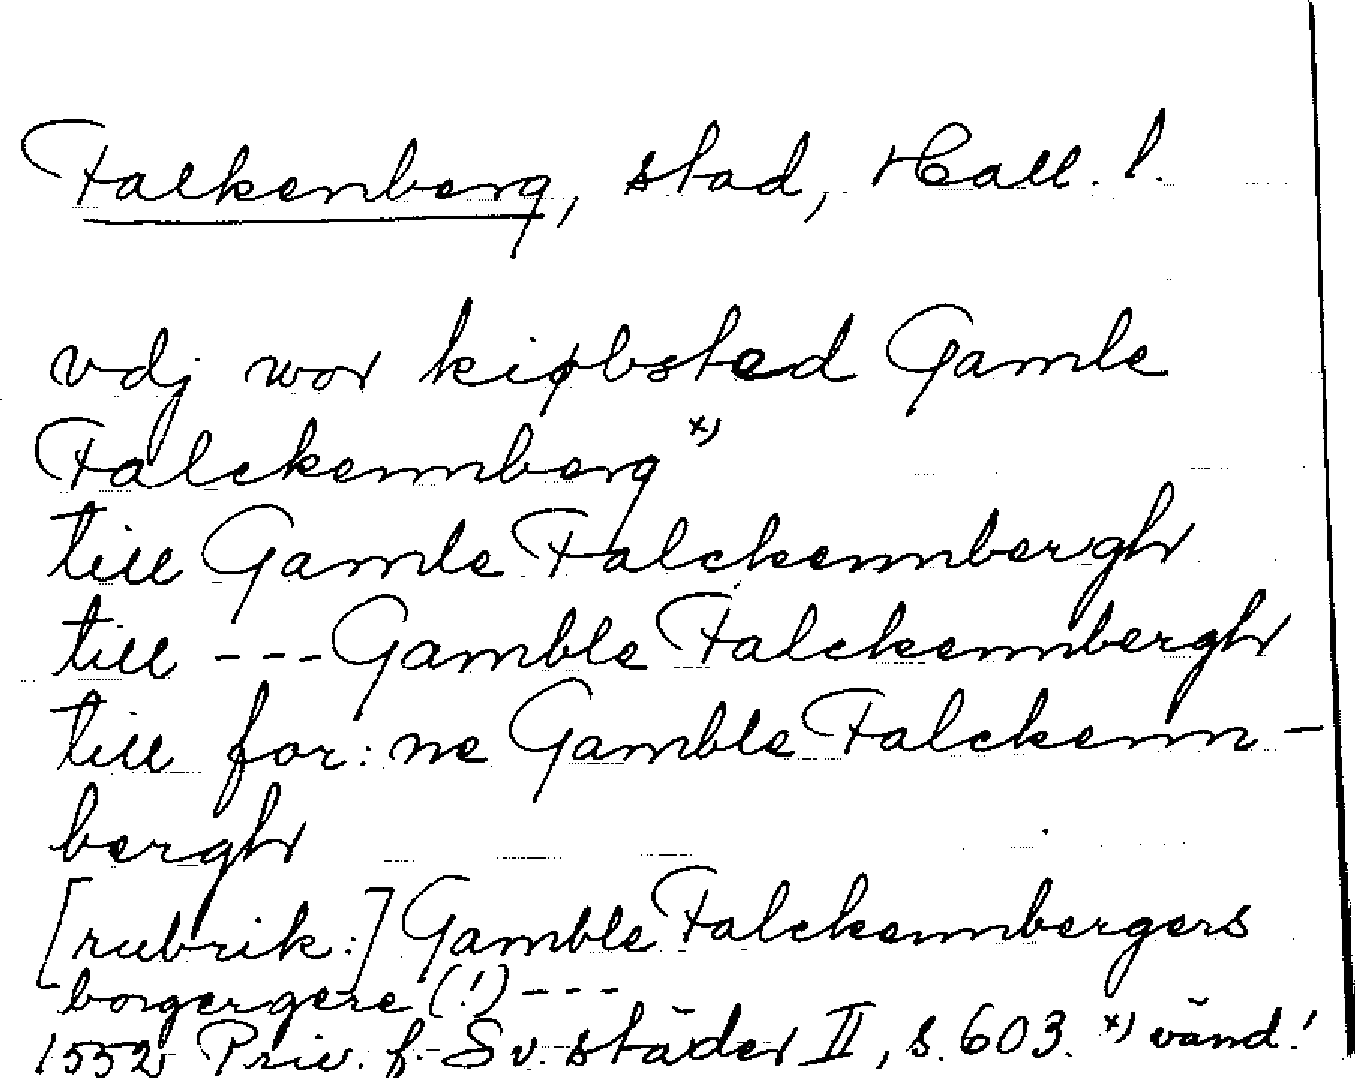 Falkenberg, stad, Hall. l.
vdj wor kiøbsted Gamle
Falckennberg x)
till Gamle Falckennbergh
till --- Gamble Falckennbergh
till for:ne Gamble Falckenn-
bergh
[rubrik:] Gamble Falckennbergers
borgergere (!) ---
1552 Priv. f. Sv. städer II, s. 603. x) vänd!